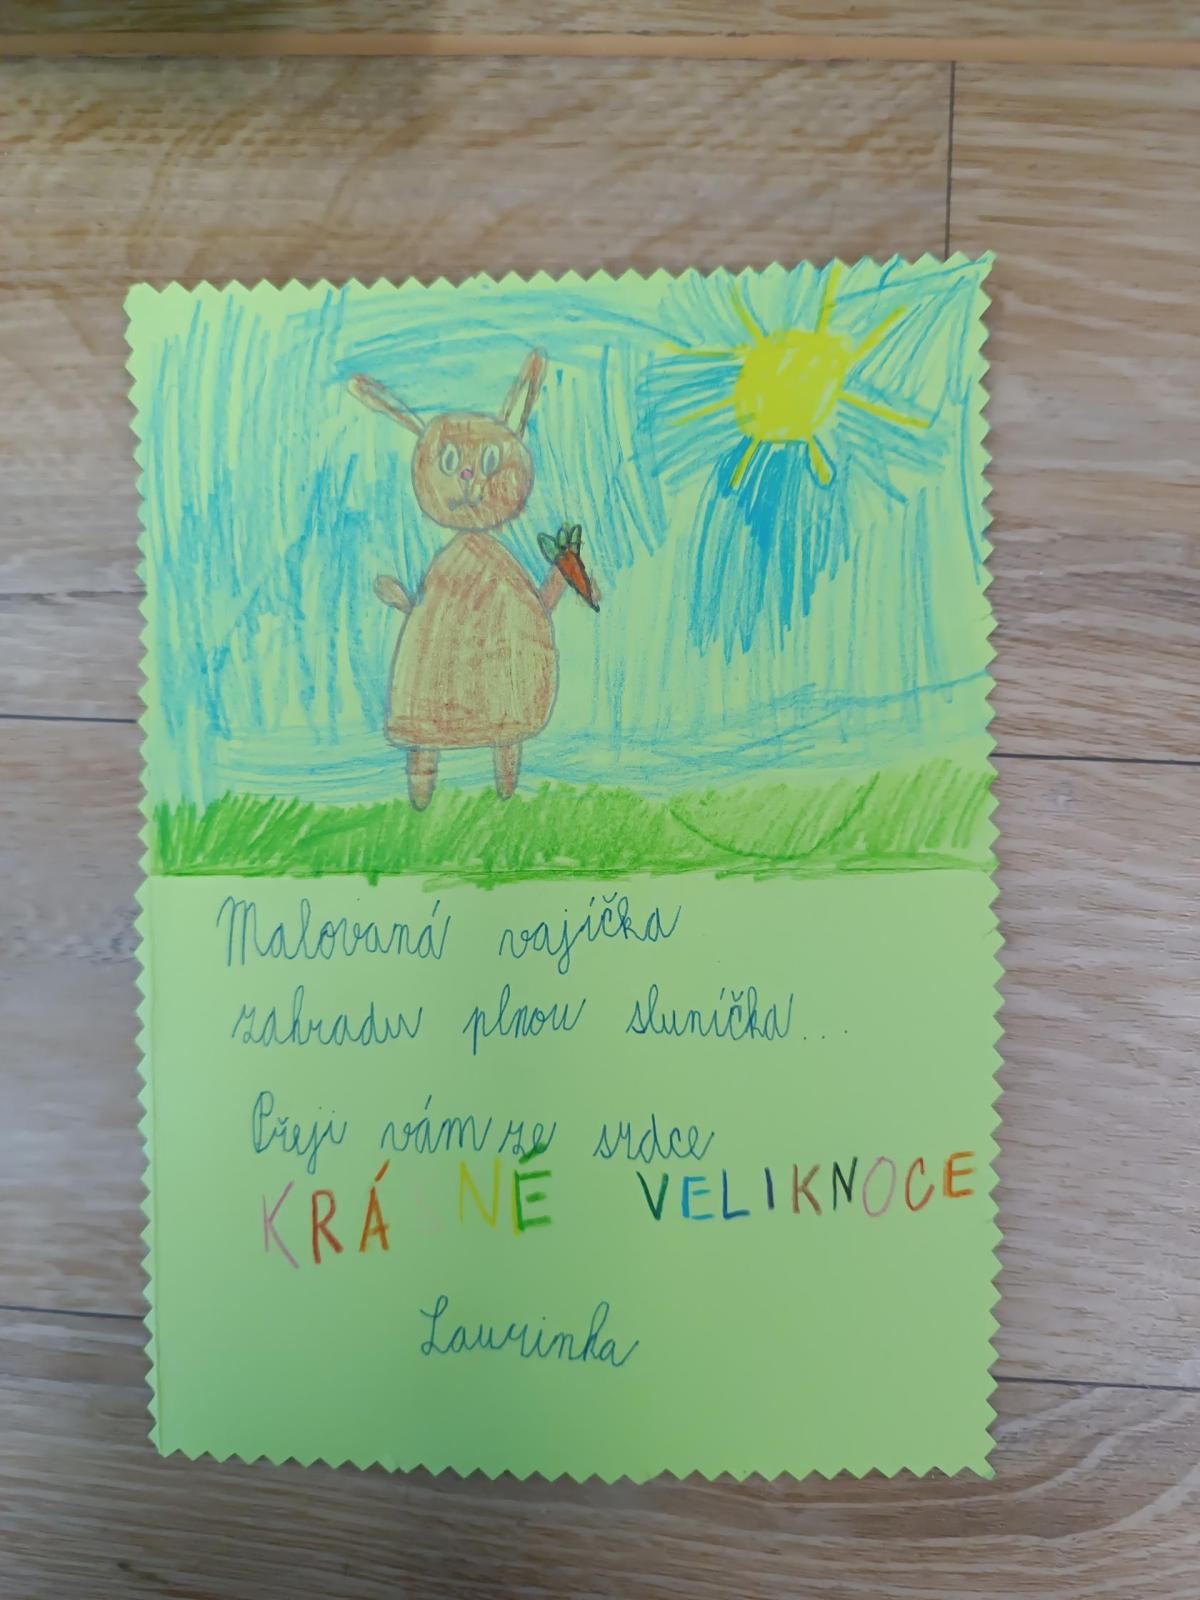 Malovaná vajíčka
zahradu plnou sluníčka...
Přeji vám ze srdce
KRÁSNÉ VELIKNOCE
Laurinka